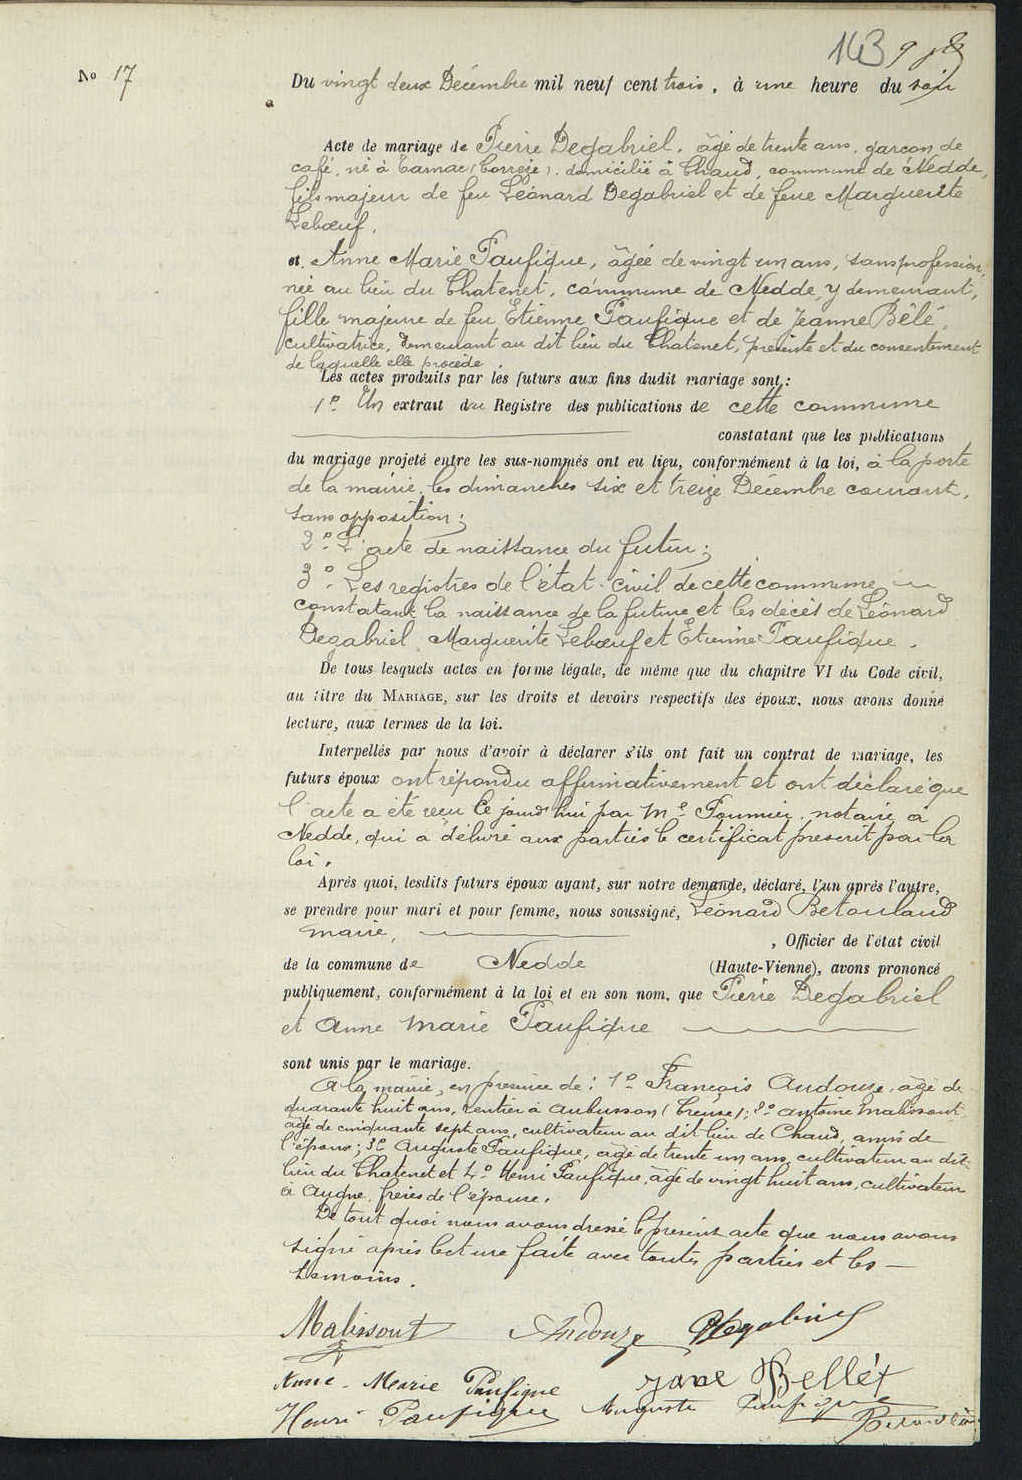 163
No 17
Du vingt deux Décembre mil neuf cent trois, à une heure du soir
Acte de mariage de Pierre Degabriel, âgé de trente ans, garçon de
café, né à Tarnac (Corrèze), domicilié à Chaud, commune de Nedde,
fils majeur de feu Léonard Degabriel et de feue Marguerite
Lebœuf.
et Anne Marie Paufique, âgée de vingt un ans, sans profession,
née au lieu du Chatenet, commune de Nedde, y demeurant,
fille majeure de feu Etienne Paufique et de Jeanne Bêlé,
cultivatrice, demeurant au dit lieu du Chatenet, présente et du consentement
de laquelle elle procède.
Les actes produits par les futurs aux fins dudit mariage sont :
1º Un extrait du Registre des publications de cette commune
constatant que les publications
du mariage projeté entre les sus-nommés ont eu lieu, conformément à la loi, à la porte
de la mairie, les dimanches six et treize Décembre courant,
sans opposition ;
2º L'acte de naissance du futur ;
3º Les registres de l'état-civil de cette commune
constatant la naissance de la future et les décès de Léonard
Degabriel, Marguerite Lebœuf et Etienne Paufique.
De tous lesquels actes en forme légale, de même que du chapitre VI du Code civil,
au titre du MARIAGE, sur les droits et devoirs respectifs des époux, nous avons donné
lecture, aux termes de la loi.
Interpellés par nous d'avoir à déclarer s'ils ont fait un contrat de mariage, les
futurs époux ont répondu affirmativement et ont déclaré que
l'acte a été reçu ce jourd'hui par Me Fournier, notaire à
Nedde, qui a délivré aux parties le certificat prescrit par la
loi.
Après quoi, lesdits futurs époux ayant, sur notre demande, déclaré, l'un après l'autre,
se prendre pour mari et pour femme, nous soussigné, Léonard Betoulaud
maire, , Officier de l'état civil
de la commune de Nedde (Haute-Vienne), avons prononcé
publiquement, conformément à la loi et en son nom, que Pierre Degabriel
et Anne Marie Paufique
sont unis par le mariage.
A la mairie, en présence de : 1º François Audouze, âgé de
quarante huit ans, rentier à Aubusson (Creuse) ; 2º Antoine Malissout
âgé de cinquante sept ans, cultivateur au dit lieu de Chaud, amis de
l'époux ; 3º Auguste Paufique, âgé de trente un ans, cultivateur au dit
lieu du Chatenet et 4º Henri Paufique, âgé de vingt huit ans, cultivateur
à Augne, frères de l'épouse.
De tout quoi nous avons dressé le présent acte que nous avons
signé après lecture faite avec toutes parties et les
témoins.
Malissout Audouze Degabriel
Anne-Marie Paufique Jane Bellét
Henri Paufique Auguste Paufique